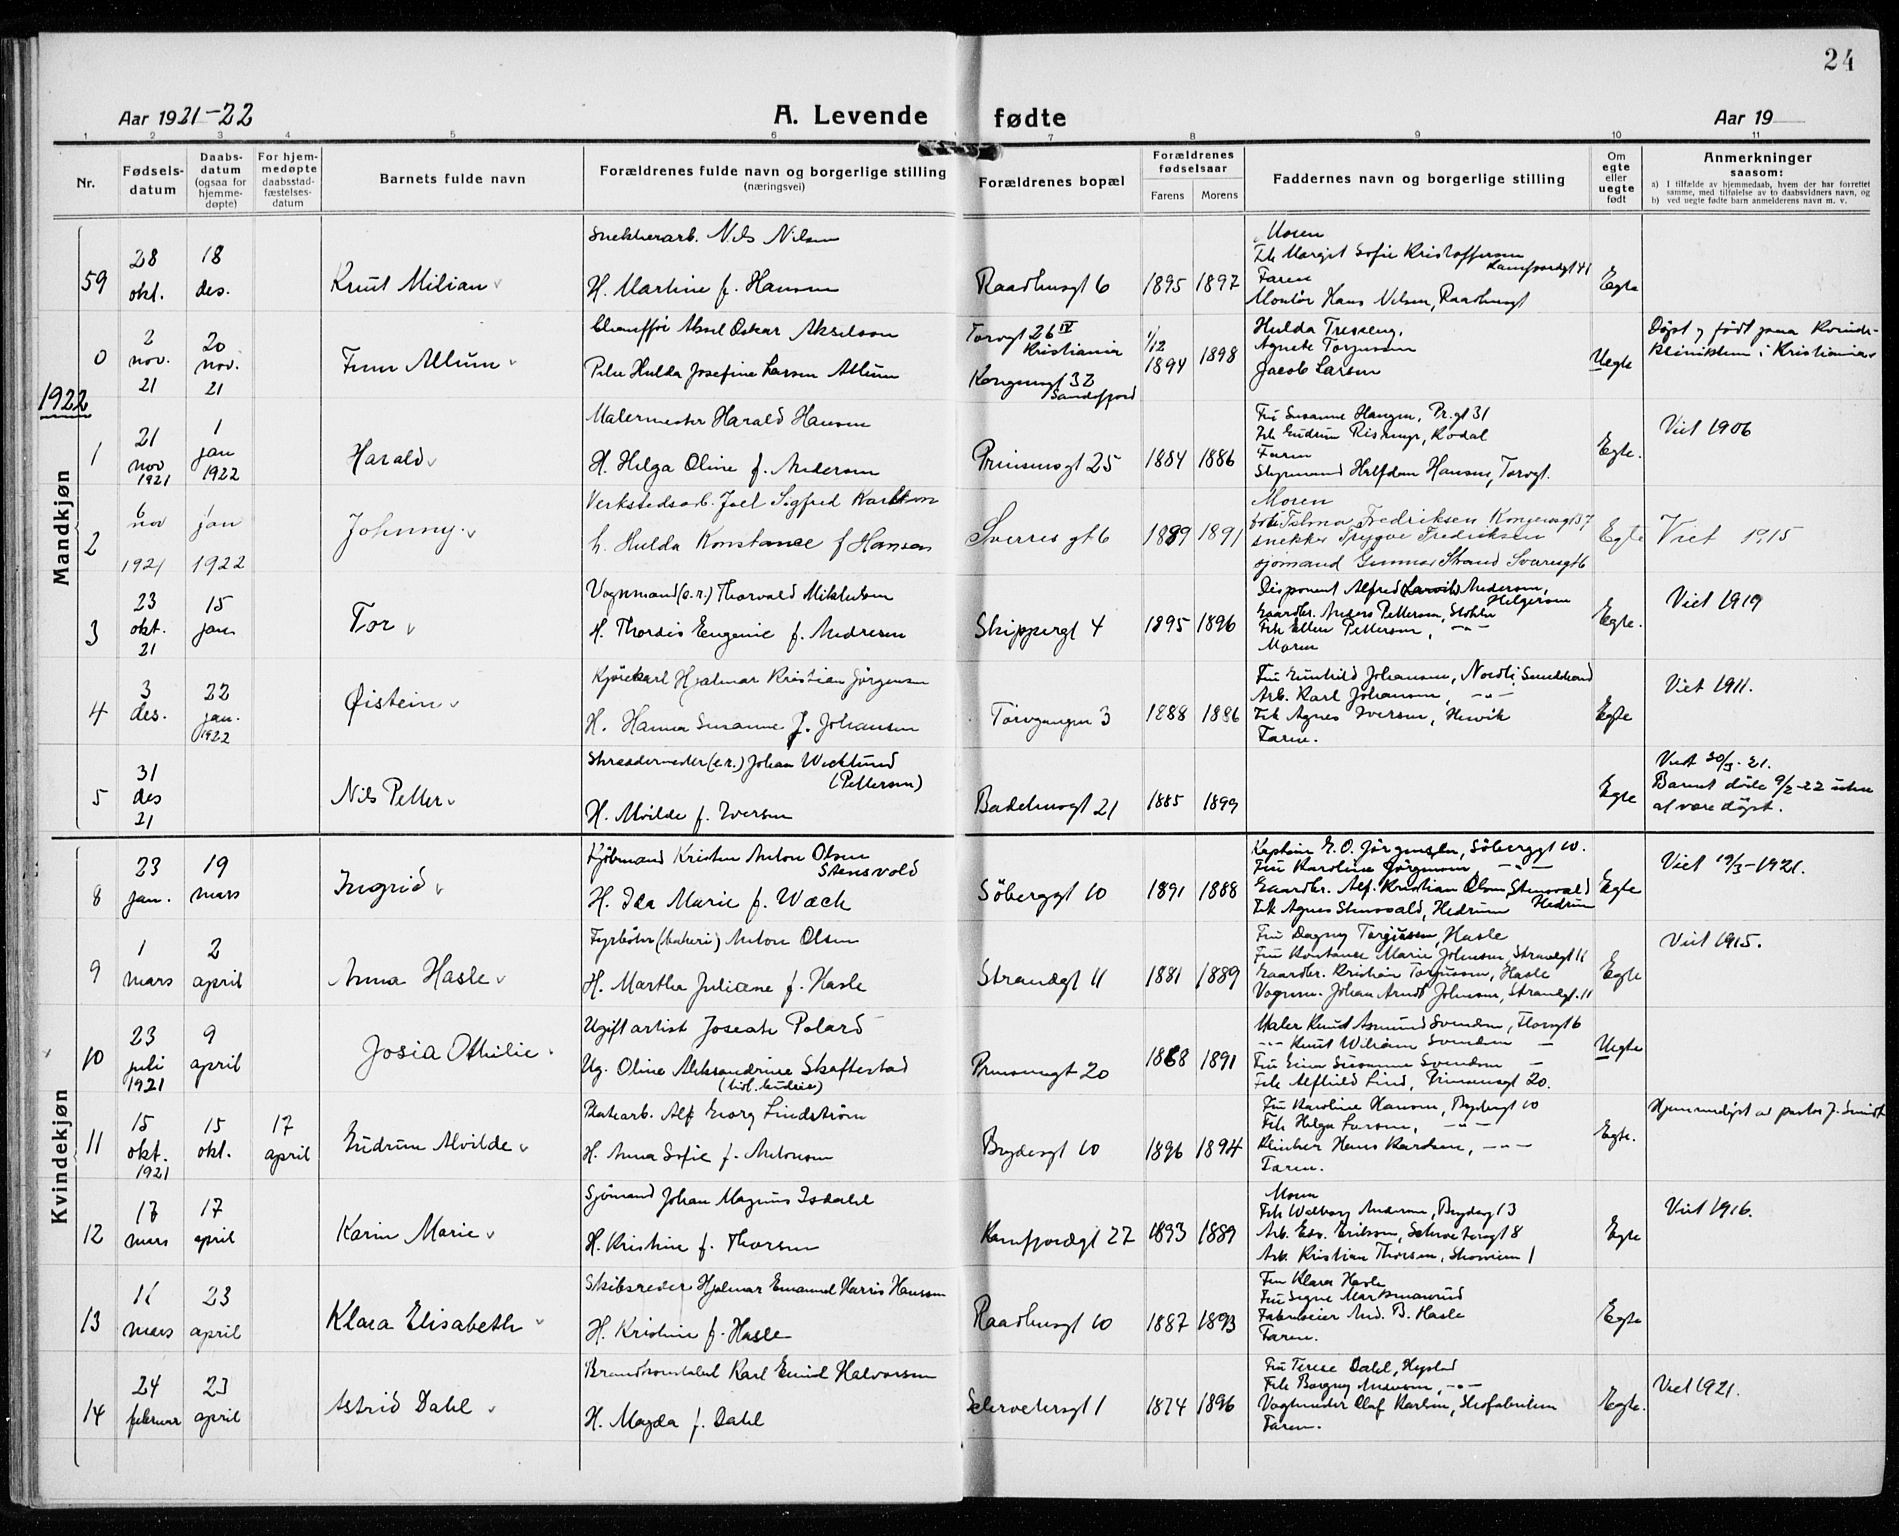 24
Aar 1921-22
A. Levende
fødte
Aar 19
1 2 3 4 5 6 7 8 9 10 11
Nr.
Fødsels-
datum
Daabs-
datum
(ogsaa for
hjemme-
døpte)
For hjem-
medøpte
daabsstad-
fæstelses-
datum
Barnets fulde navn
Forældrenes fulde navn og borgerlige stilling
(næringsvei)
Forældrenes bopæl
Forældrenes
fødselsaar
Farens Morens
Faddernes navn og borgerlige stilling
Om
egte
eller
uegte
født
Anmerkninger
saasom:
a) I tilfælde av hjemmedaab, hvem der har forrettet
samme, med tilføielse av to daabsvidners navn, og
b) ved uegte fødte barn anmelderens navn m. v.
Mandkjøn
59
28
okt.
18
des.
Knut Milian
Snekkerarb. Nils Nilsen
H. Martine f. Hansen
Raadhusgt 6
1895 1897
Moren
Frk Margit Sofie Kristoffersen
Kamfjordgt 41
Faren
Montør Hans Nilsen, Raadhusgt
Egte
0
2
nov.
21
20
nov.
21
Chauffør Aksel Oskar Akselson
Hulda Josefine Larsen
Torvgt 26 IV
Kristiania
Kongensgt 32
Sandefjord
1/12
1894 1898
Agnete Torgussen
Jacob Larsen
Uegte
Døpt og født paa Kvinde-
klinikken i Kristiania
1922
1
21
nov
1921
1
jan
1922
Harald
Malermester Harald Hansen
H. Helga Oline f. Andersen
Prinsensgt 25
1884 1886
Fru Susanne Hangen, Pr.gt 31
Frk Gudrun
Faren
Styrmand Halfdan Hansen, Torvgt.
Egte.
Viet 1906
2
6
nov
1921
1
jan
1922
Johnny
Verkstedsarb. Joel Sigfred Karlsson
h. Hulda Konstance f Hansen
Sverresgt 6
1889 1891
Moren
Fredriksen Kongensgt 37
snekker Trygve Fredriksen
sjømand Gunnar Strand Sverresgt 6
Egte
Viet 1915
3
23
okt.
21
15
jan
Tor
Vognmand (e.r.) Thorvald Mikkelsen
H. Thordis Eugenie f. Andresen
Skippergt 4
1895 1896
Disponent Alfred Andersen,
Helgerøen
Gaardbr. Anders Pettersen,
Frk Ellen Pettersen, -"-
Moren
Egte.
Viet 1919
4
3
des.
22
jan.
1922
Øistein
Kjørekarl Hjalmar Kristian Jørgensen
H. Hanna Susanne f. Johansen
Torvgangen 3
1888 1886
Fru Gunhild Johansen, Nordli
Arb. Karl Johansen, -"-
Frk Agnes Iversen,
Faren.
Egte
Viet 1911.
5
31
des
21
Nils Petter
Skræddermester (e.r.) Johan Wicklund
(Pettersen)
H. Alvilde f. Iversen
Badehusgt 21
1885 1899
Egte
Viet 30/3-21.
Barnet døde 9/2-22 uten
at være døpt.
Kvindekjøn
8
23
jan.
19
mars
Ingrid
Kjøbmand Kristen Anton Olsen
Stensvold
H. Ida Marie f. Wæch
Søberggt 10
1891 1888
Kaptein E. O. Jørgensen, Søberggt 10.
Fru Karoline Jørgensen -"-
Gaardbr. Alf. Kristian Olsen Stensvold
Hedrum
Frk Agnes Stensvold, Hedrum
Egte
Viet 19/3-1921.
9
1
mars
2
april
Anna Hasle
Fyrbøter (bakeri) Anton Olsen
H. Martha Juliane f. Hasle
Strandgt 11
1881 1889
Fru Dagny Torgussen, Hasle
Fru Konstanse Marie Johnsen, Strandgt 11
Gaardbr. Kristian Torgussen, Hasle
Vognm. Johan Arndt Johnsen, Strandgt. 11
Egte
Viet 1915.
10
23
juli
1921
9
april
Josia Othilie
Ugift artist Joseath Polard
Ug. Oline Aleksandrine Skaftestad
Prinsensgt 20
1868 1891
Maler Knut Asmund Svendsen, Thorsgt 6
-"- Knut Wilhelm Svendsen -
Fru Susanne Svendsen -
Frk Alfhild Lind, Prinsensgt 20.
Uegte
11
15
okt.
1921
15
okt.
17
april
Gudrun Alvilde
Platearb. Alf Georg Lindstrøm
H. Anna Sofie f. Antonsen
Brydesgt 10
1896 1894
Fru Karoline Hansen, Brydesgt 10
Frk Helga Larsen, -"-
Klinker Hans Karlsen, -"-
Faren.
Egte.
Hjemmedøpt av pastor J. Smidt
12
17
mars
17
april
Karin Marie
Sjømand Johan Magnus Isdahl
H. Kristine f. Thorsen
Kamfjordgt 27
1893 1889
Moren
Frk Walborg Andersen, Brydesgt 13
Arb. Edv. Eriksen, Schrøtersgt 8
Arb. Kristian Thorsen, Skoveien 1
Egte
Viet 1916.
13
mars
23
april
Klara Elisabeth
Skibsreder Hjalmar Emanuel Harris Hansen
H. Kristine f. Hasle
Raadhusgt 10
1887 1893
Fru Klara Hasle
Fru Signe
Fabrikeier And. B. Hasle
Faren.
Egte
14
24
februar
23
april
Astrid Dahl
Brandkonstabel Karl Emil Halvorsen
H. Magda f. Dahl
Schrøtersgt 1
1874 1896
Fru Terese Dahl, Hystad
Frk Borgny Andersen, -"-
Vogtmester Olaf Karlsen,
Faren.
Egte.
Viet 1921.